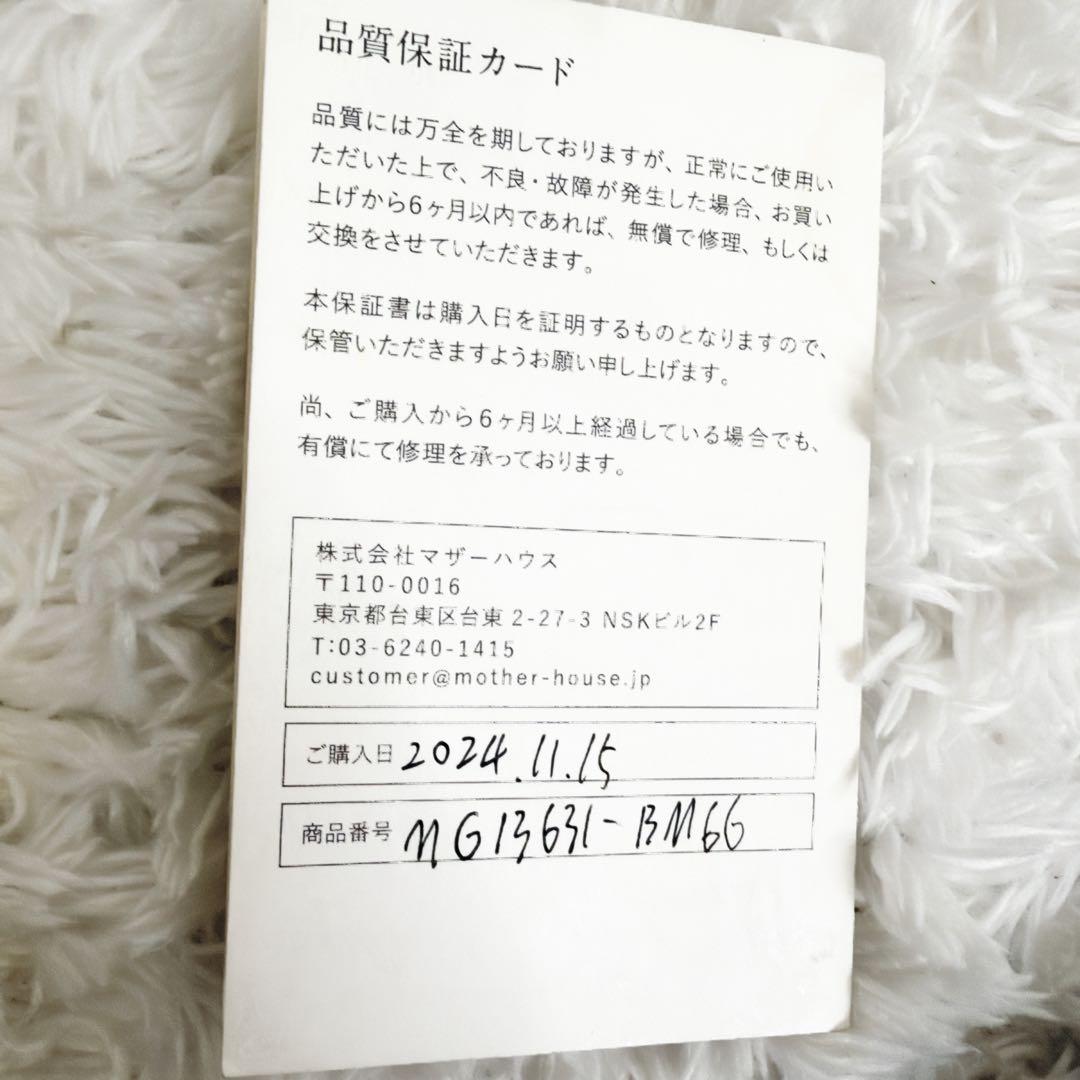 品質保証カード
品質には万全を期しておりますが、正常にご使用い
ただいた上で、不良・故障が発生した場合、お買い
上げから6ヶ月以内であれば、無償で修理、もしくは
交換をさせていただきます。
本保証書は購入日を証明するものとなりますので、
保管いただきますようお願い申し上げます。
尚、ご購入から6ヶ月以上経過している場合でも、
有償にて修理を承っております。
株式会社マザーハウス
〒110-0016
東京都台東区台東 2-27-3 NSKビル2F
T:03-6240-1415
customer@mother-house.jp
ご購入日 2024.11.15
商品番号 MG13631-BM66